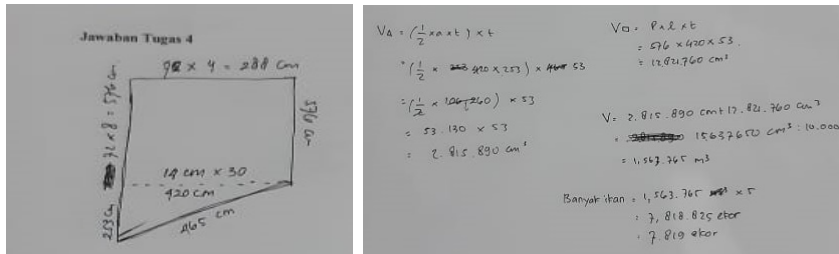 Jawaban Tugas 4
72 × 4 = 288 cm
72 × 8 = 576 cm
576 cm
14 cm × 30
420 cm
253 cm
465 cm
V△ = (1/2 × a × t) × t
= (1/2 × 420 × 253) × 53
= (1/2 × 106.260) × 53
= 53.130 × 53
= 2.815.890 cm³
V□ = P × l × t
= 576 × 420 × 53
= 12.821.760 cm³
V = 2.815.890 cm + 12.821.760 cm³
= 15637650 cm³ : 10.000
= 1,563.765 m³
Banyak ikan = 1,563.765 × 5
= 7,818.825 ekor
= 7.819 ekor